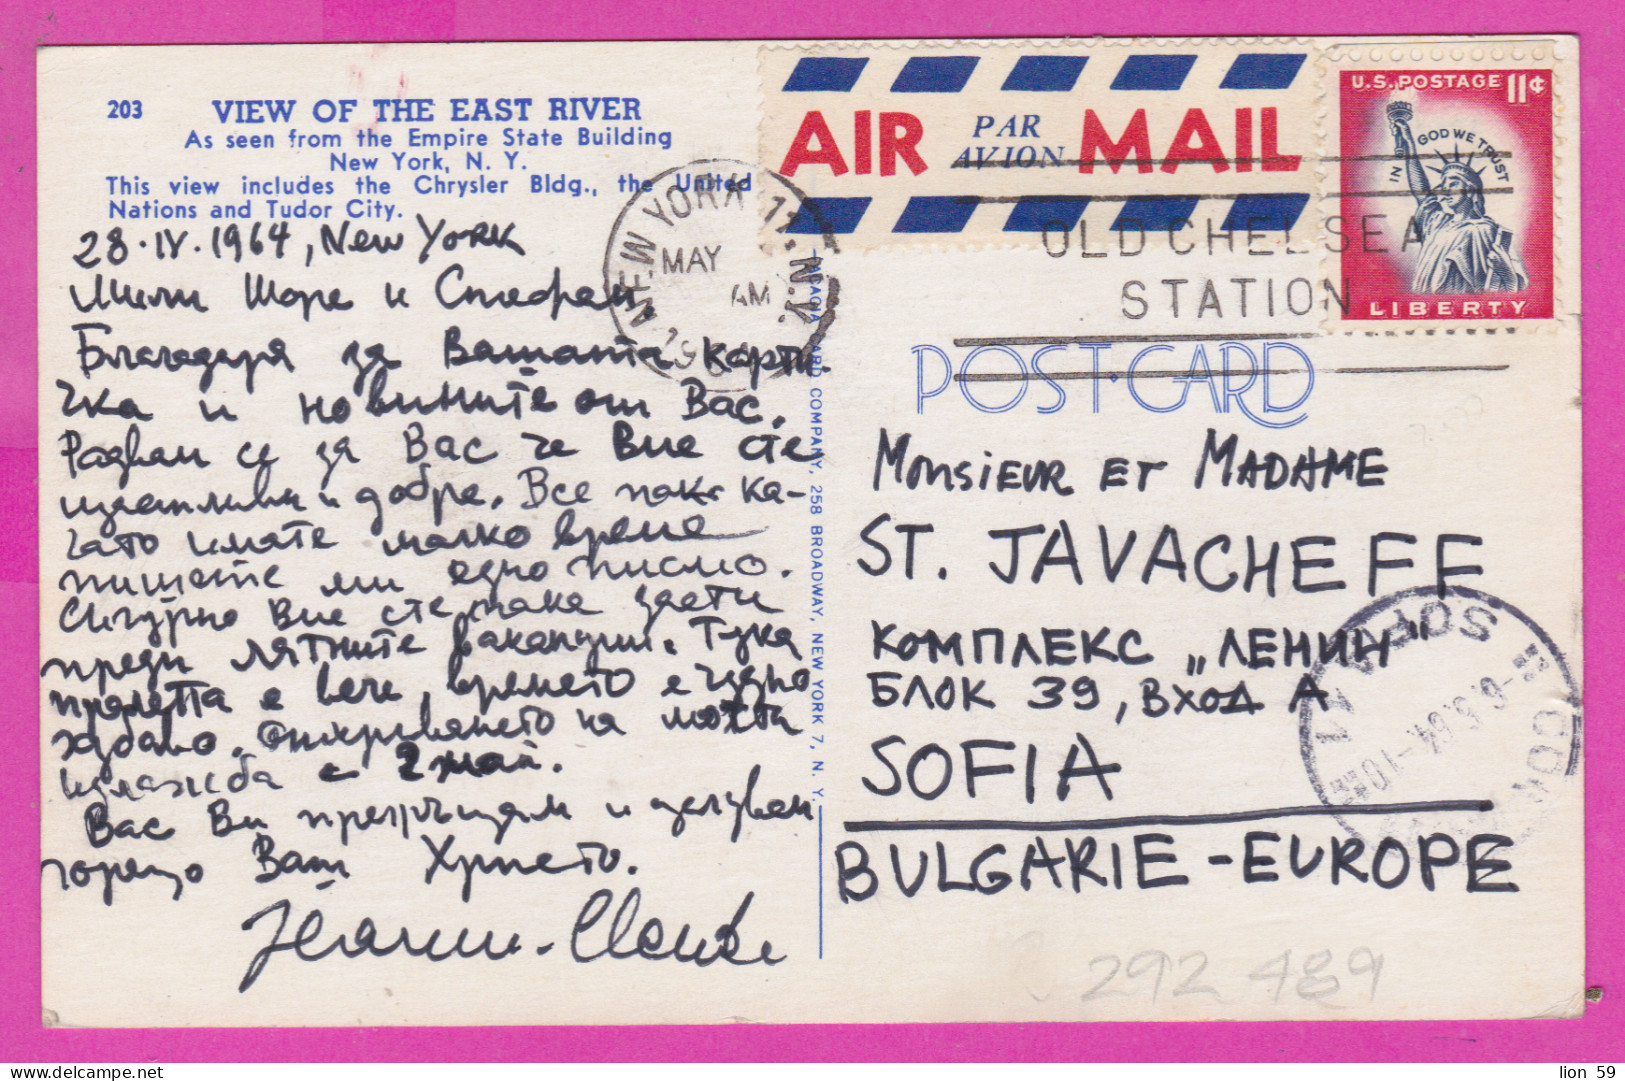 203 VIEW OF THE EAST RIVER
As seen from the Empire State Building
New York, N. Y.
This view includes the Chrysler Bldg., the United
Nations and Tudor City.
28.IV.1964, New York
Мили Шоре и Стефан,
Благодаря за Вашата карти-
чка и новините от Вас.
Радвам се за Вас че Вие сте
щастливи и добре. Все пак ка-
гато имате малко време
пишете ми едно писмо.
Сигурно Вие сте така заети
преди лятните ваканции. Тука
пролетта е вече, времето е чудно
хубаво. Откриването на моята
изложба е 2 май.
Вас Ви прегръщам и целувам
горещо Ваш Христо.
Jeanne-Claude
ACACIA CARD COMPANY, 258 BROADWAY, NEW YORK 7, N. Y.
AIR PAR AVION MAIL
U.S. POSTAGE 11¢
IN GOD WE TRUST
LIBERTY
NEW YORK 11, N.Y.
MAY
AM
OLD CHELSEA
STATION
POST CARD
MONSIEUR ET MADAME
ST. JAVACHEFF
КОМПЛЕКС „ЛЕНИН"
БЛОК 39, ВХОД А
SOFIA
BULGARIE - EUROPE
SOF
292 489
lion 59